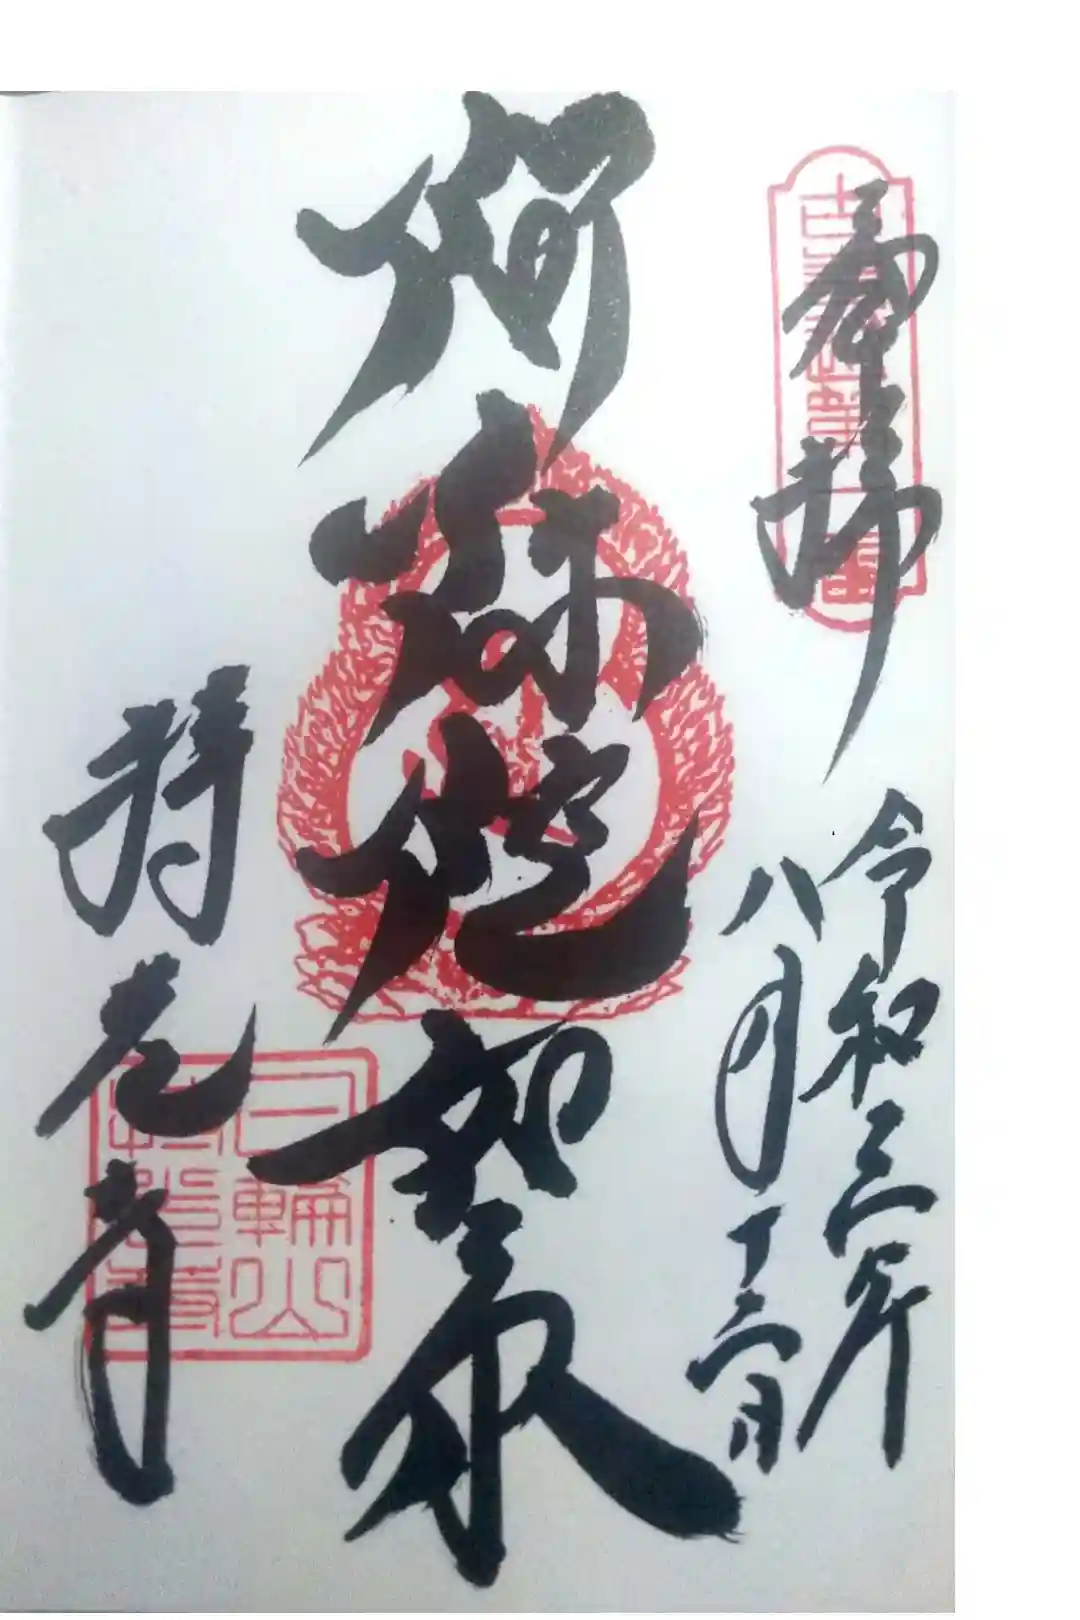 奉拝
令和三年
八月十三日
阿弥陀如来
持光寺
日輪山
持光寺